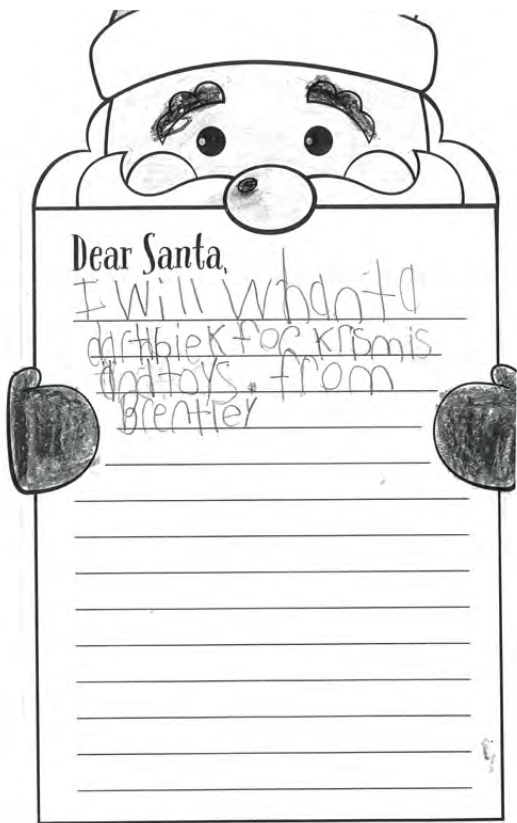 Dear Santa,
I Will Whant a
dirtbiek for krismis
and toys. from
Brentley